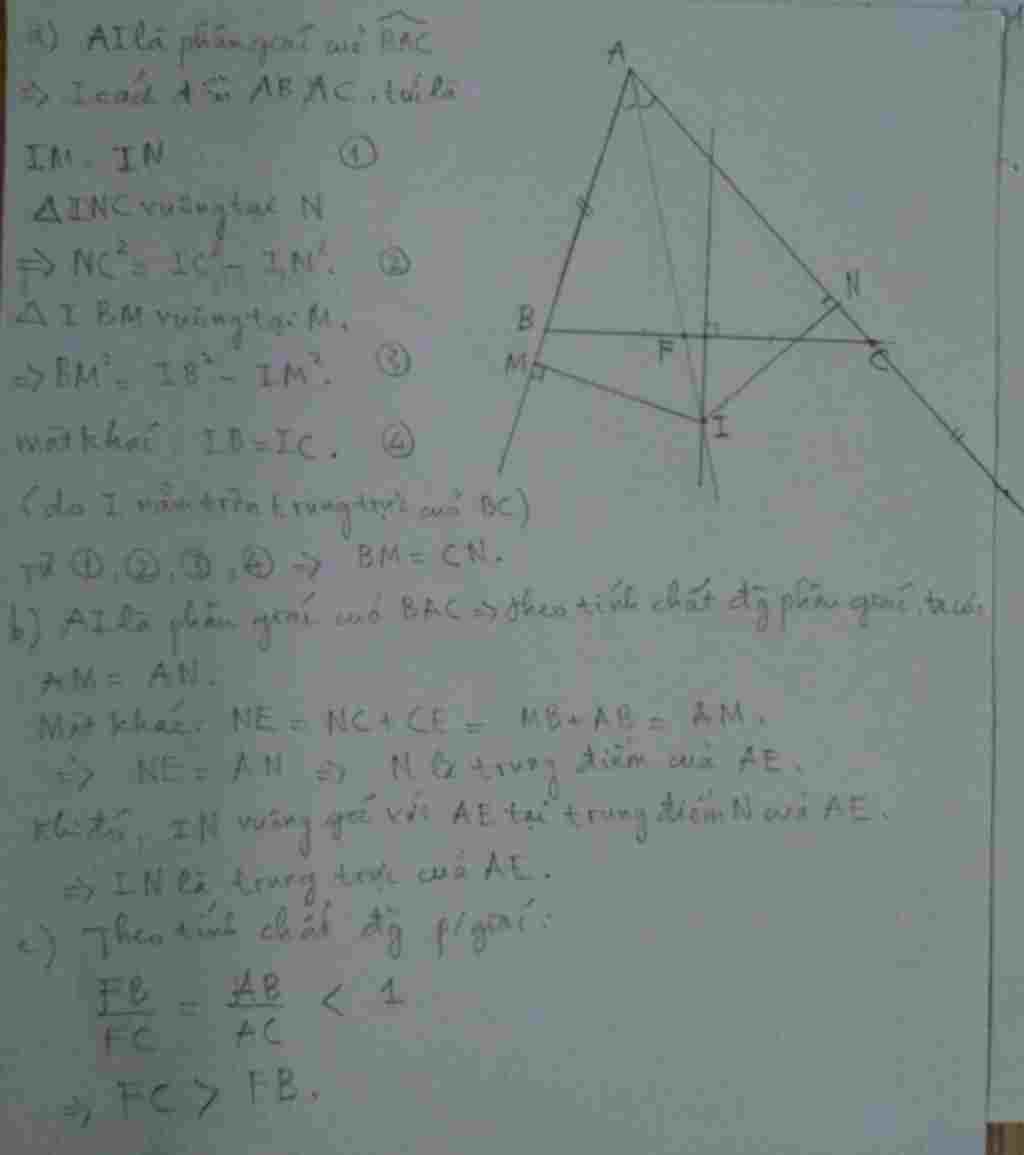 a) AI là phân giác của BAC
=> I cách đều AB, AC, tức là
IM = IN ①
Δ INC vuông tại N
=> NC² = IC² - IN². ②
Δ I BM vuông tại M.
=> BM² = IB² - IM². ③
mặt khác IB = IC. ④
(do I nằm trên trung trực của BC)
Từ ①, ②, ③, ④ => BM = CN.
b) AI là phân giác của BAC => theo tính chất đg phân giác, ta có:
AM = AN.
Mặt khác: NE = NC + CE = MB + AB = AM.
=> NE = AN => N là trung điểm của AE.
Khi đó, IN vuông góc với AE tại trung điểm N của AE.
=> IN là trung trực của AE.
c) Theo tính chất đg p/giác:
FB/FC = AB/AC < 1
=> FC > FB.
A
B
M
F
I
N
C